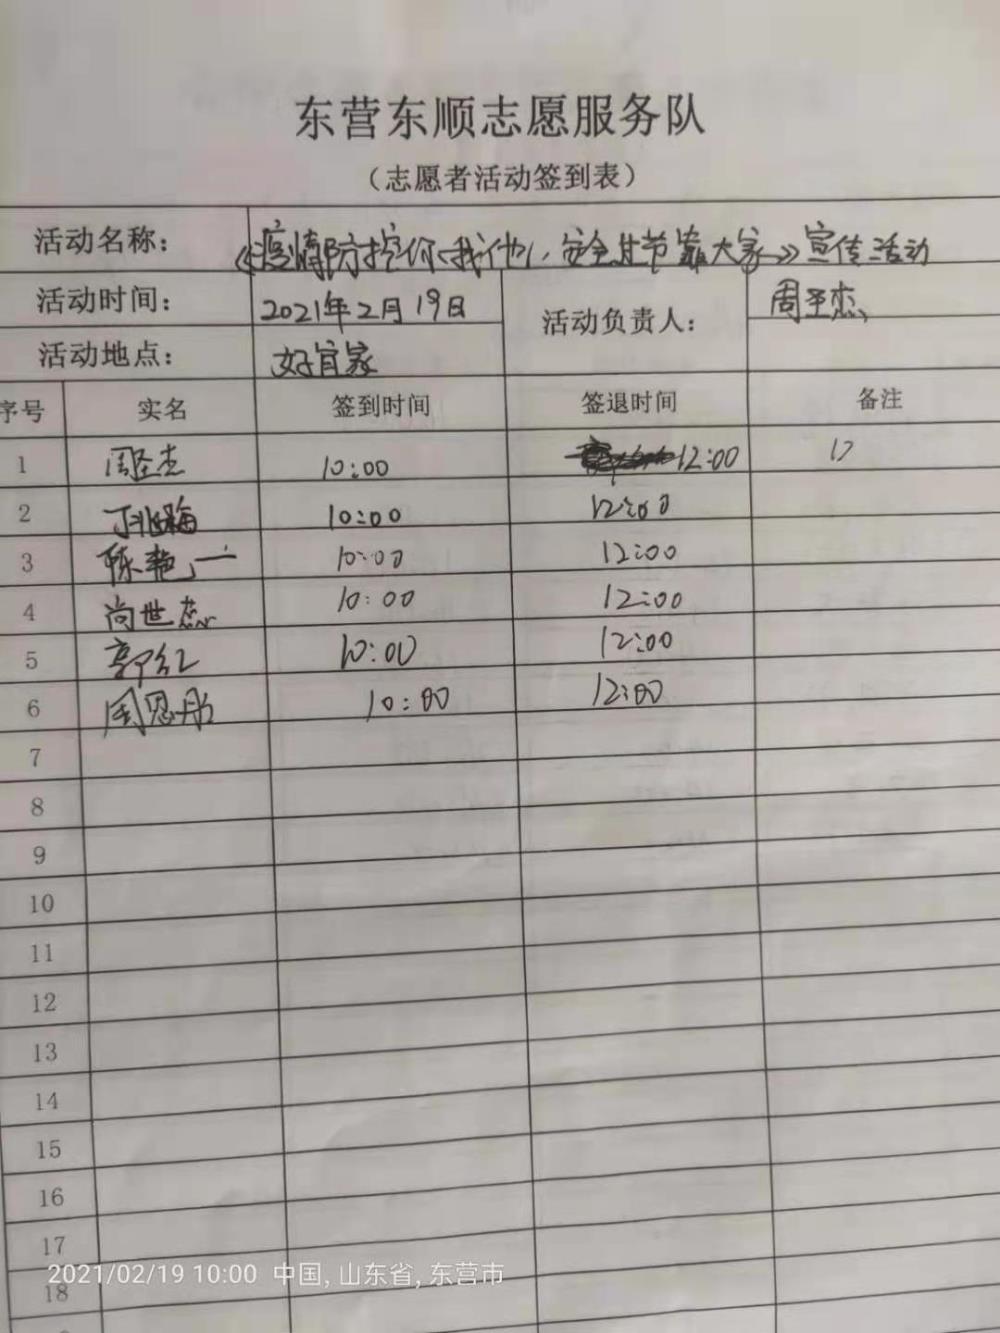 东营东顺志愿服务队
(志愿者活动签到表)
活动名称: 《疫情防控你我他, 安全过节靠大家》宣传活动
活动时间: 2021年2月19日 活动负责人: 周圣杰
活动地点: 好宜家
序号 实名 签到时间 签退时间 备注
1 周圣杰 10:00 12:00
2 10:00 12:00
3 陈艳 10:00 12:00
4 尚世杰 10:00 12:00
5 郭红 10:00 12:00
6 周恩彤 10:00 12:00
7
8
9
10
11
12
13
14
15
16
17
2021/02/19 10:00 中国, 山东省, 东营市
18